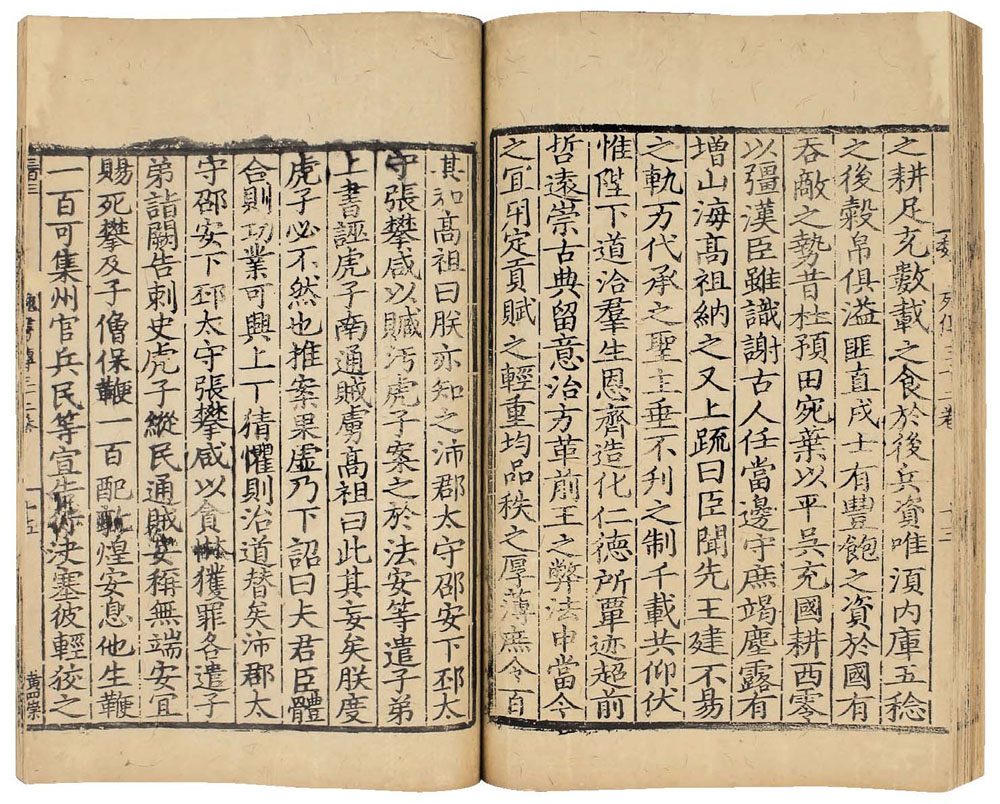 之耕足充數載之食於後兵資唯湏内庫五稔
之後穀帛俱溢匪直戍士有豐飽之資於國有
吞敵之勢昔杜預田宛葉以平吳充國耕西零
以彊漢臣雖識謝古人任當邊守庶竭塵露有
增山海高祖納之又上䟽曰臣聞先王建不易
之軌万代承之聖主垂不刋之制千載共仰伏
惟陛下道洽羣生恩齊造化仁德所覃迹超前
哲遠崇古典留意治方革前王之弊法申當今
之宜用定貢賦之輕重均品秩之厚薄庶令百
其和高祖曰朕亦知之沛郡太守邵安下邳太
守張攀咸以贓汚虎子案之於法安等遣子弟
上書誣虎子南通賊虜高祖曰此其妄矣朕度
虎子必不然也推案果虛乃下詔曰夫君臣體
合則功業可興上下猜懼則治道替矣沛郡太
守邵安下邳太守張攀咸以貪惏獲罪各遣子
弟詣闕告刺史虎子縱民通賊妄稱無端安宜
賜死攀及子僧保鞭一百配敦煌安息他生鞭
一百可集州官兵民等宣告行決塞彼輕狡之
黃四榮